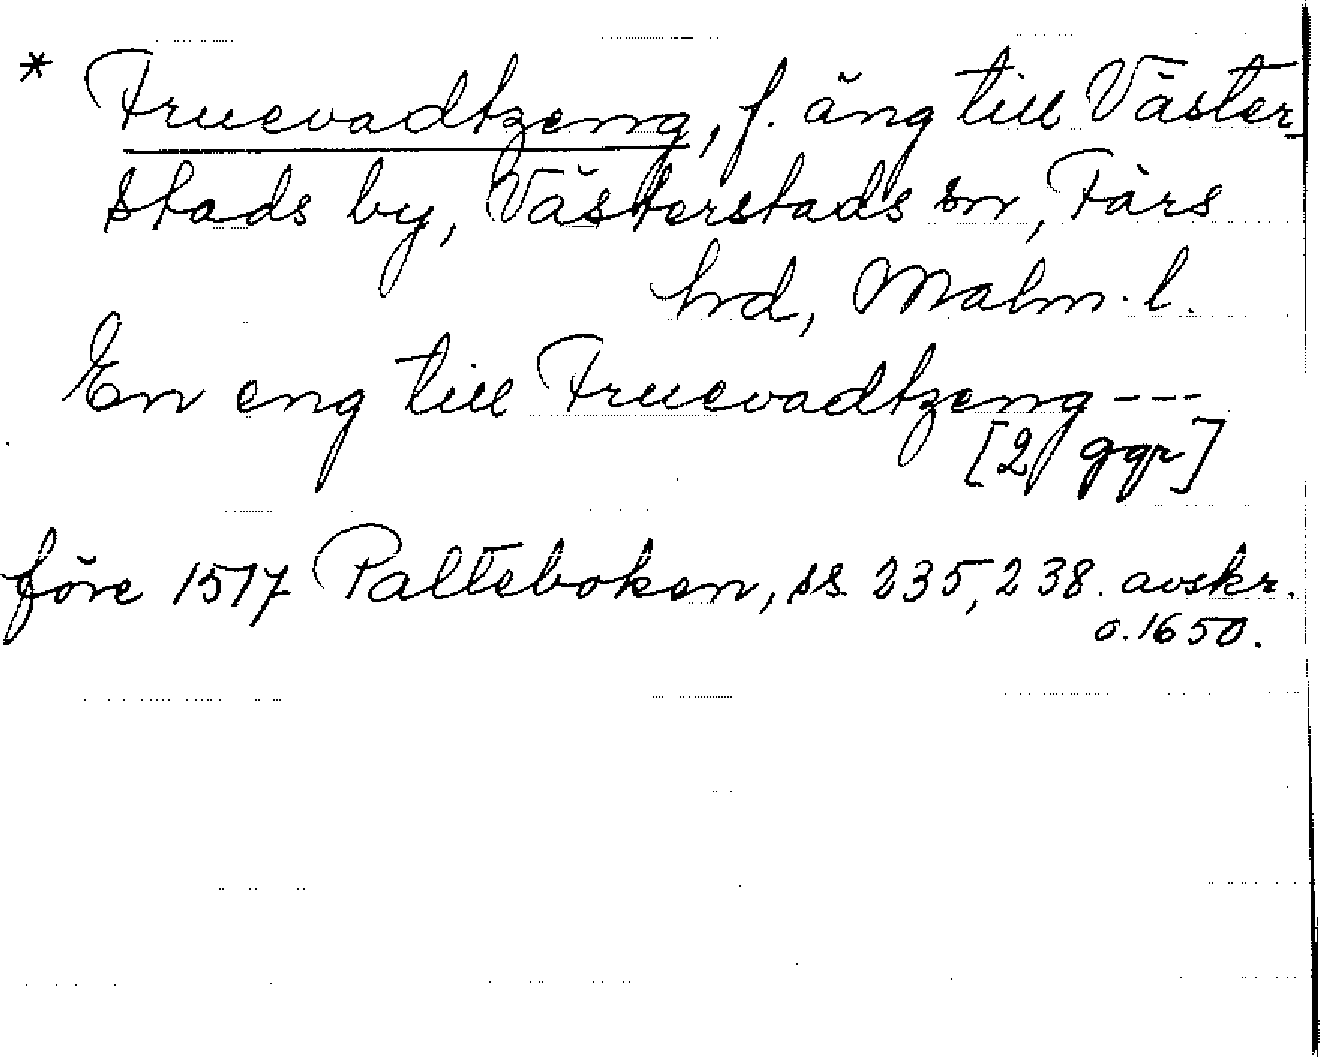 * Fruevadtzeng, f. äng till Väster-
stads by, Västerstads sn, Färs
hd, Malm. l.
En eng till Fruevadtzeng ---
[2 ggr]
före 1517 Palteboken, ss. 235, 238. avskr.
o. 1650.